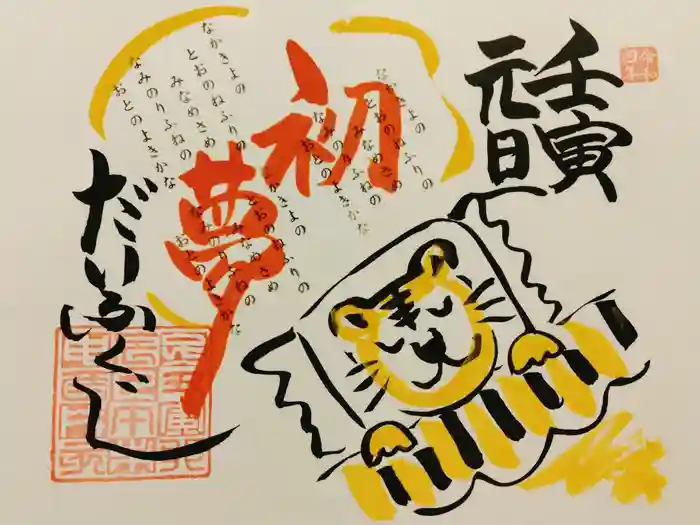 壬寅
元日
令和
四年
初夢
なかきよの
とおのねふりの
みなめさめ
なみのりふねの
おとのよきかな
なかきよの
とおのねふりの
みなめさめ
なみのりふねの
おとのよきかな
なかきよの
とおのねふりの
みなめさめ
なみのりふねの
おとのよきかな
だいふくじ